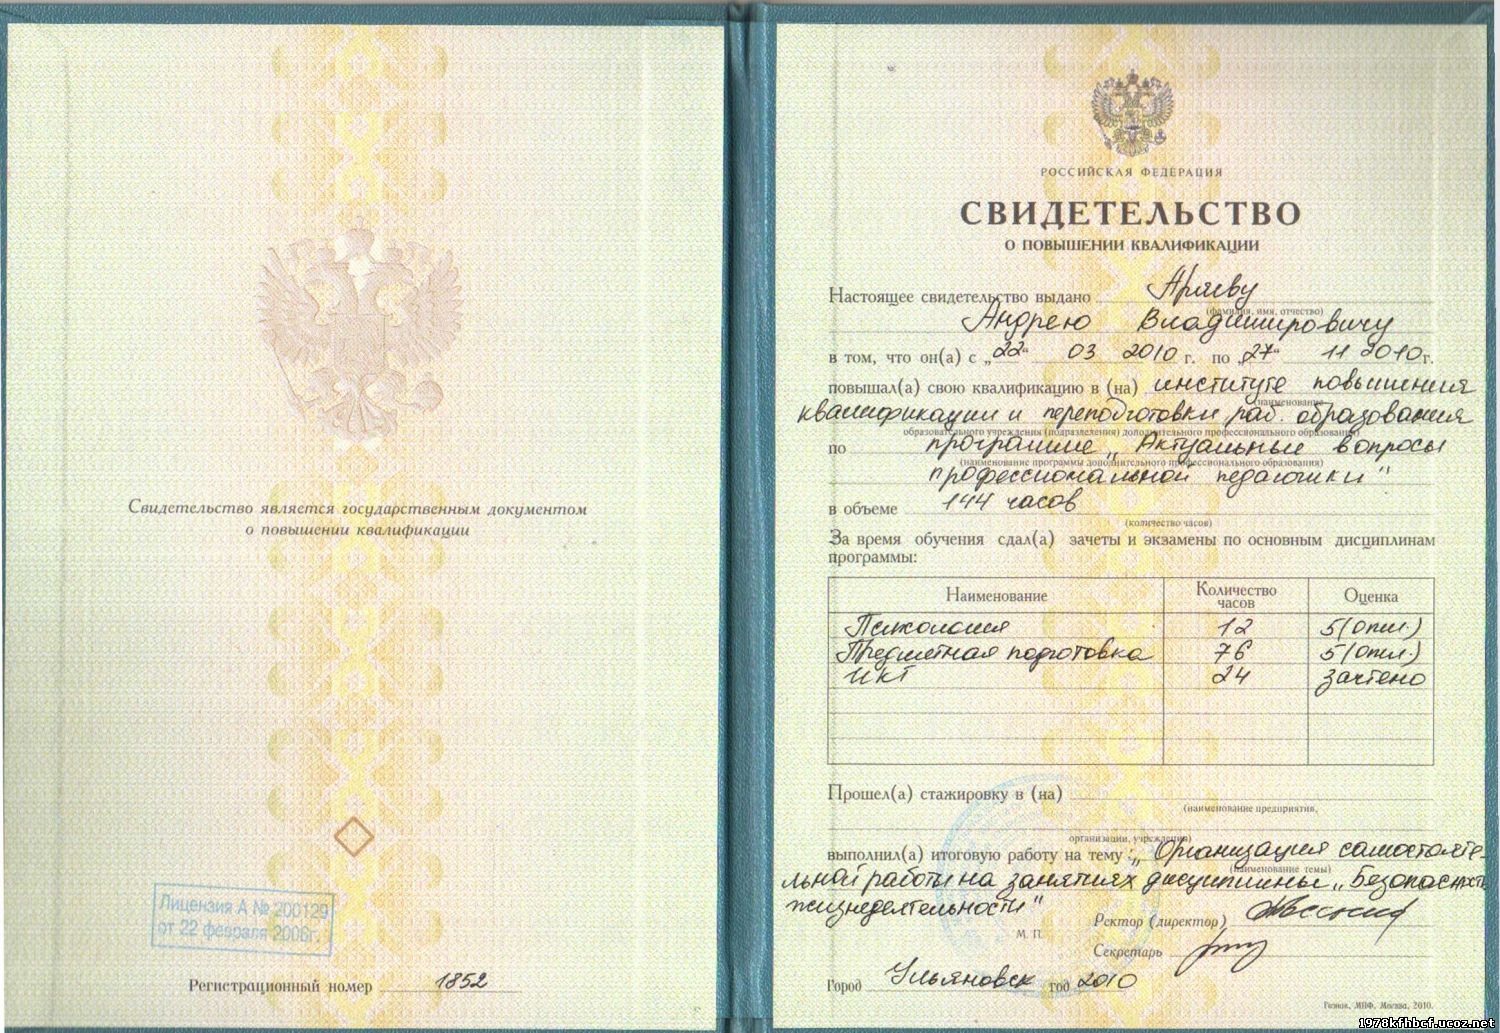 Свидетельство является государственным документом
о повышении квалификации
Лицензия А № 200129
от 22 февраля 2006г.
Регистрационный номер 1852
РОССИЙСКАЯ ФЕДЕРАЦИЯ
СВИДЕТЕЛЬСТВО
О ПОВЫШЕНИИ КВАЛИФИКАЦИИ
Настоящее свидетельство выдано
(фамилия, имя, отчество)
Андрею Владимировичу
в том, что он(а) с „22“ 03 2010 г. по „27“ 11 2010г.
повышал(а) свою квалификацию в (на) институте повышения
(наименование
квалификации и переподготовки раб. образования
образовательного учреждения (подразделения) дополнительного профессионального образования)
по программе „Актуальные вопросы
(наименование программы дополнительного профессионального образования)
профессиональной педагогики"
в объеме 144 часов
(количество часов)
За время обучения сдал(а) зачеты и экзамены по основным дисциплинам
программы:
Наименование Количество часов Оценка
Психология 12 5(отл.)
Предметная подготовка 76 5(отл.)
ИКТ 24 зачтено
Прошел(а) стажировку в (на)
(наименование предприятия,
организации, учреждения)
выполнил(а) итоговую работу на тему: „Организация самостояте-
(наименование темы)
льной работы на занятиях дисциплины „Безопасность
жизнедеятельности"
Ректор (директор)
М. П.
Секретарь
Город Ульяновск год 2010
Гознак, МПФ, Москва, 2010.
1978kfhbcf.ucoz.net